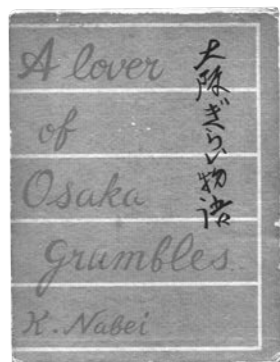 A lover
of
Osaka
grumbles
K. Nabei
大阪ぎらい物語